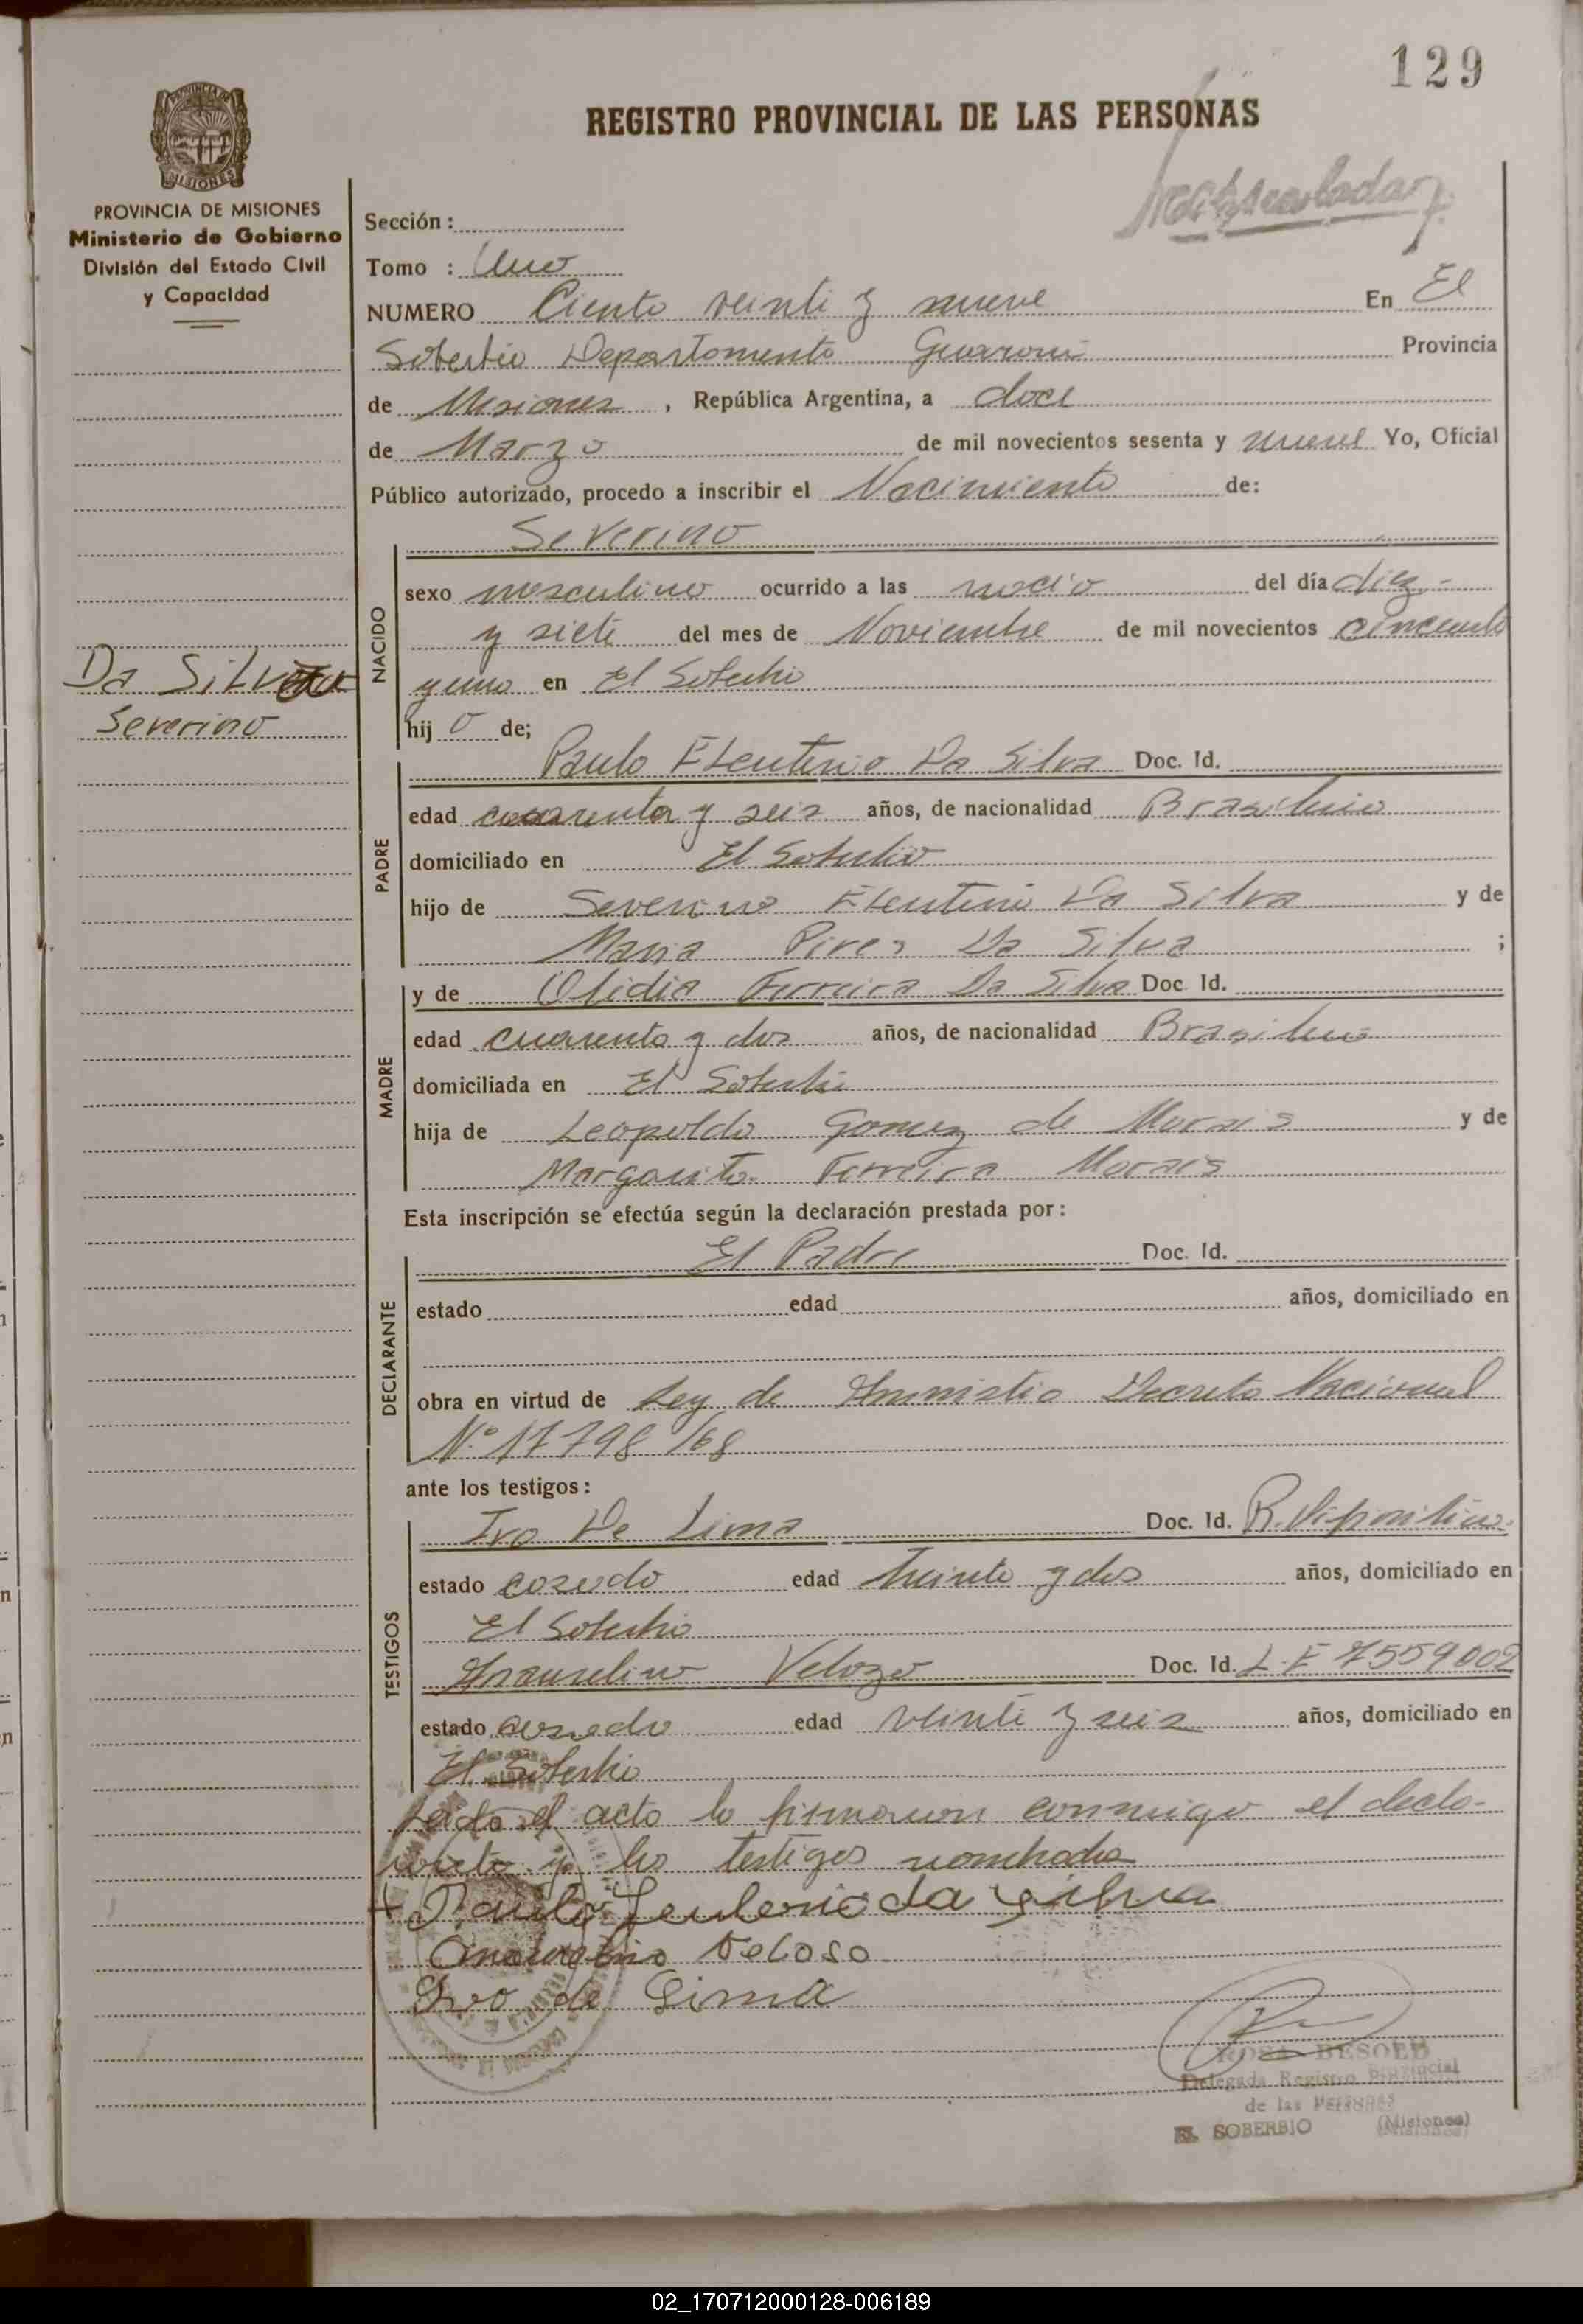 129
REGISTRO PROVINCIAL DE LAS PERSONAS
PROVINCIA DE MISIONES
Ministerio de Gobierno
División del Estado Civil
y Capacidad
Sección :
Tomo : Uno
NUMERO Ciento veinti y nueve En El
Soberbio Departamento Guarani Provincia
de Misiones , República Argentina, a doce
de Marzo de mil novecientos sesenta y nueve Yo, Oficial
Público autorizado, procedo a inscribir el Nacimiento de:
Severino
NACIDO
sexo masculino ocurrido a las nacio del día diez-
y siete del mes de Noviembre de mil novecientos cincuenta
y uno en El Soberbio
hij o de;
Da Silva
Severino
Paulo Eleuterio Da Silva Doc. Id.
PADRE
edad cuarenta y seis años, de nacionalidad Brasileño
domiciliado en El Soberbio
hijo de Severino Eleuterio Da Silva y de
Maria Pires Da Silva ;
MADRE
y de Olidia Ferreira Da Silva Doc. Id.
edad cuarenta y dos años, de nacionalidad Brasileña
domiciliada en El Soberbio
hija de Leopoldo Gomez de Morais y de
Margarita Ferreira Morais
Esta inscripción se efectúa según la declaración prestada por :
El Padre Doc. Id.
DECLARANTE
estado edad años, domiciliado en
obra en virtud de Ley de Amnistia Decreto Nacional
N° 17798/68
ante los testigos :
TESTIGOS
Ivo De Lima Doc. Id.
estado casado edad treinta y dos años, domiciliado en
El Soberbio
Amauselino Velozo Doc. Id. L.E 7559002
estado casado edad veinti y seis años, domiciliado en
El Soberbio
Leido el acto lo firmaron conmigo el decla-
rante y los testigos nombrados
Paulo Leuterio da Silva
Veloso
Ivo de Lima
ROSA BESOLD
Delegada Registro Provincial
de las Personas
EL SOBERBIO (Misiones)
02_170712000128-006189